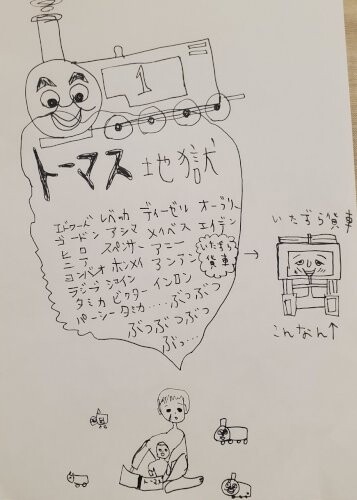 1
トーマス 地獄
エドワード レベッカ ディーゼル オーブリー
ゴードン アシマ メイベス エイデン
ヒロ スペンサー アニー
いたずら貨車
ニア
コンベオ ホンメイ アンアン
ラジーブ ジイン
タミカ ビクター インロン
パーシー タミカ・・・・ぶつぶつ
ぶつぶつぶつ
ぶっ…
→
いたずら貨車
こんなん↑
トーマス